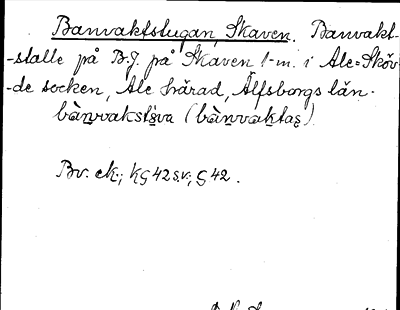 Banvaktstugan, Skaven. Banvakt-
-stalle på B.J. på Skaven 1-m. i Ale=Sköv-
-de socken, Ale härad, Älfsborgs län.
bànvakstùva (bànvaktas)
Bv. ek.; kG 42 s.v.; G 42.